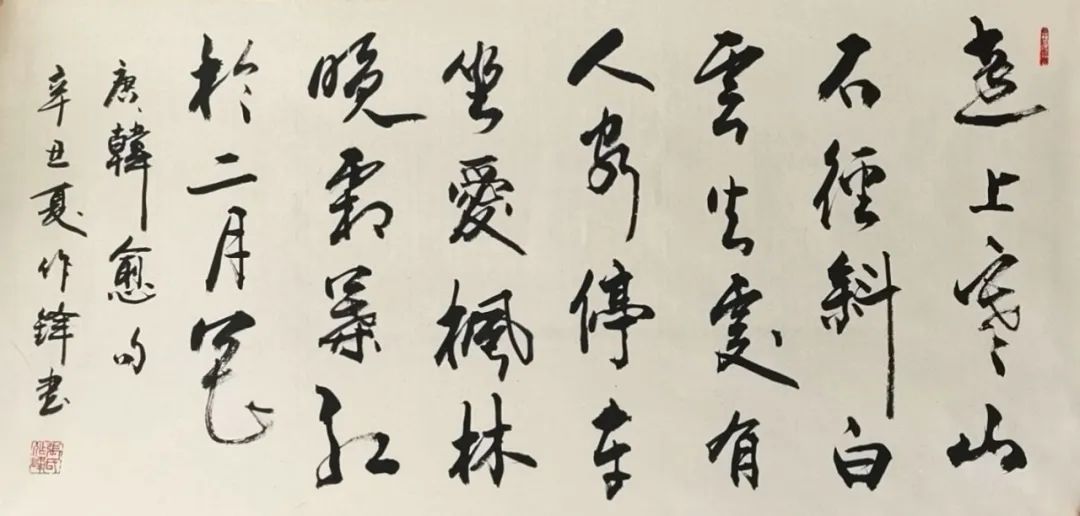 遠上寒山
石徑斜白
雲生處有
人家停車
坐愛楓林
晚霜葉紅
於二月花
唐韓愈句
辛丑夏作鋒書